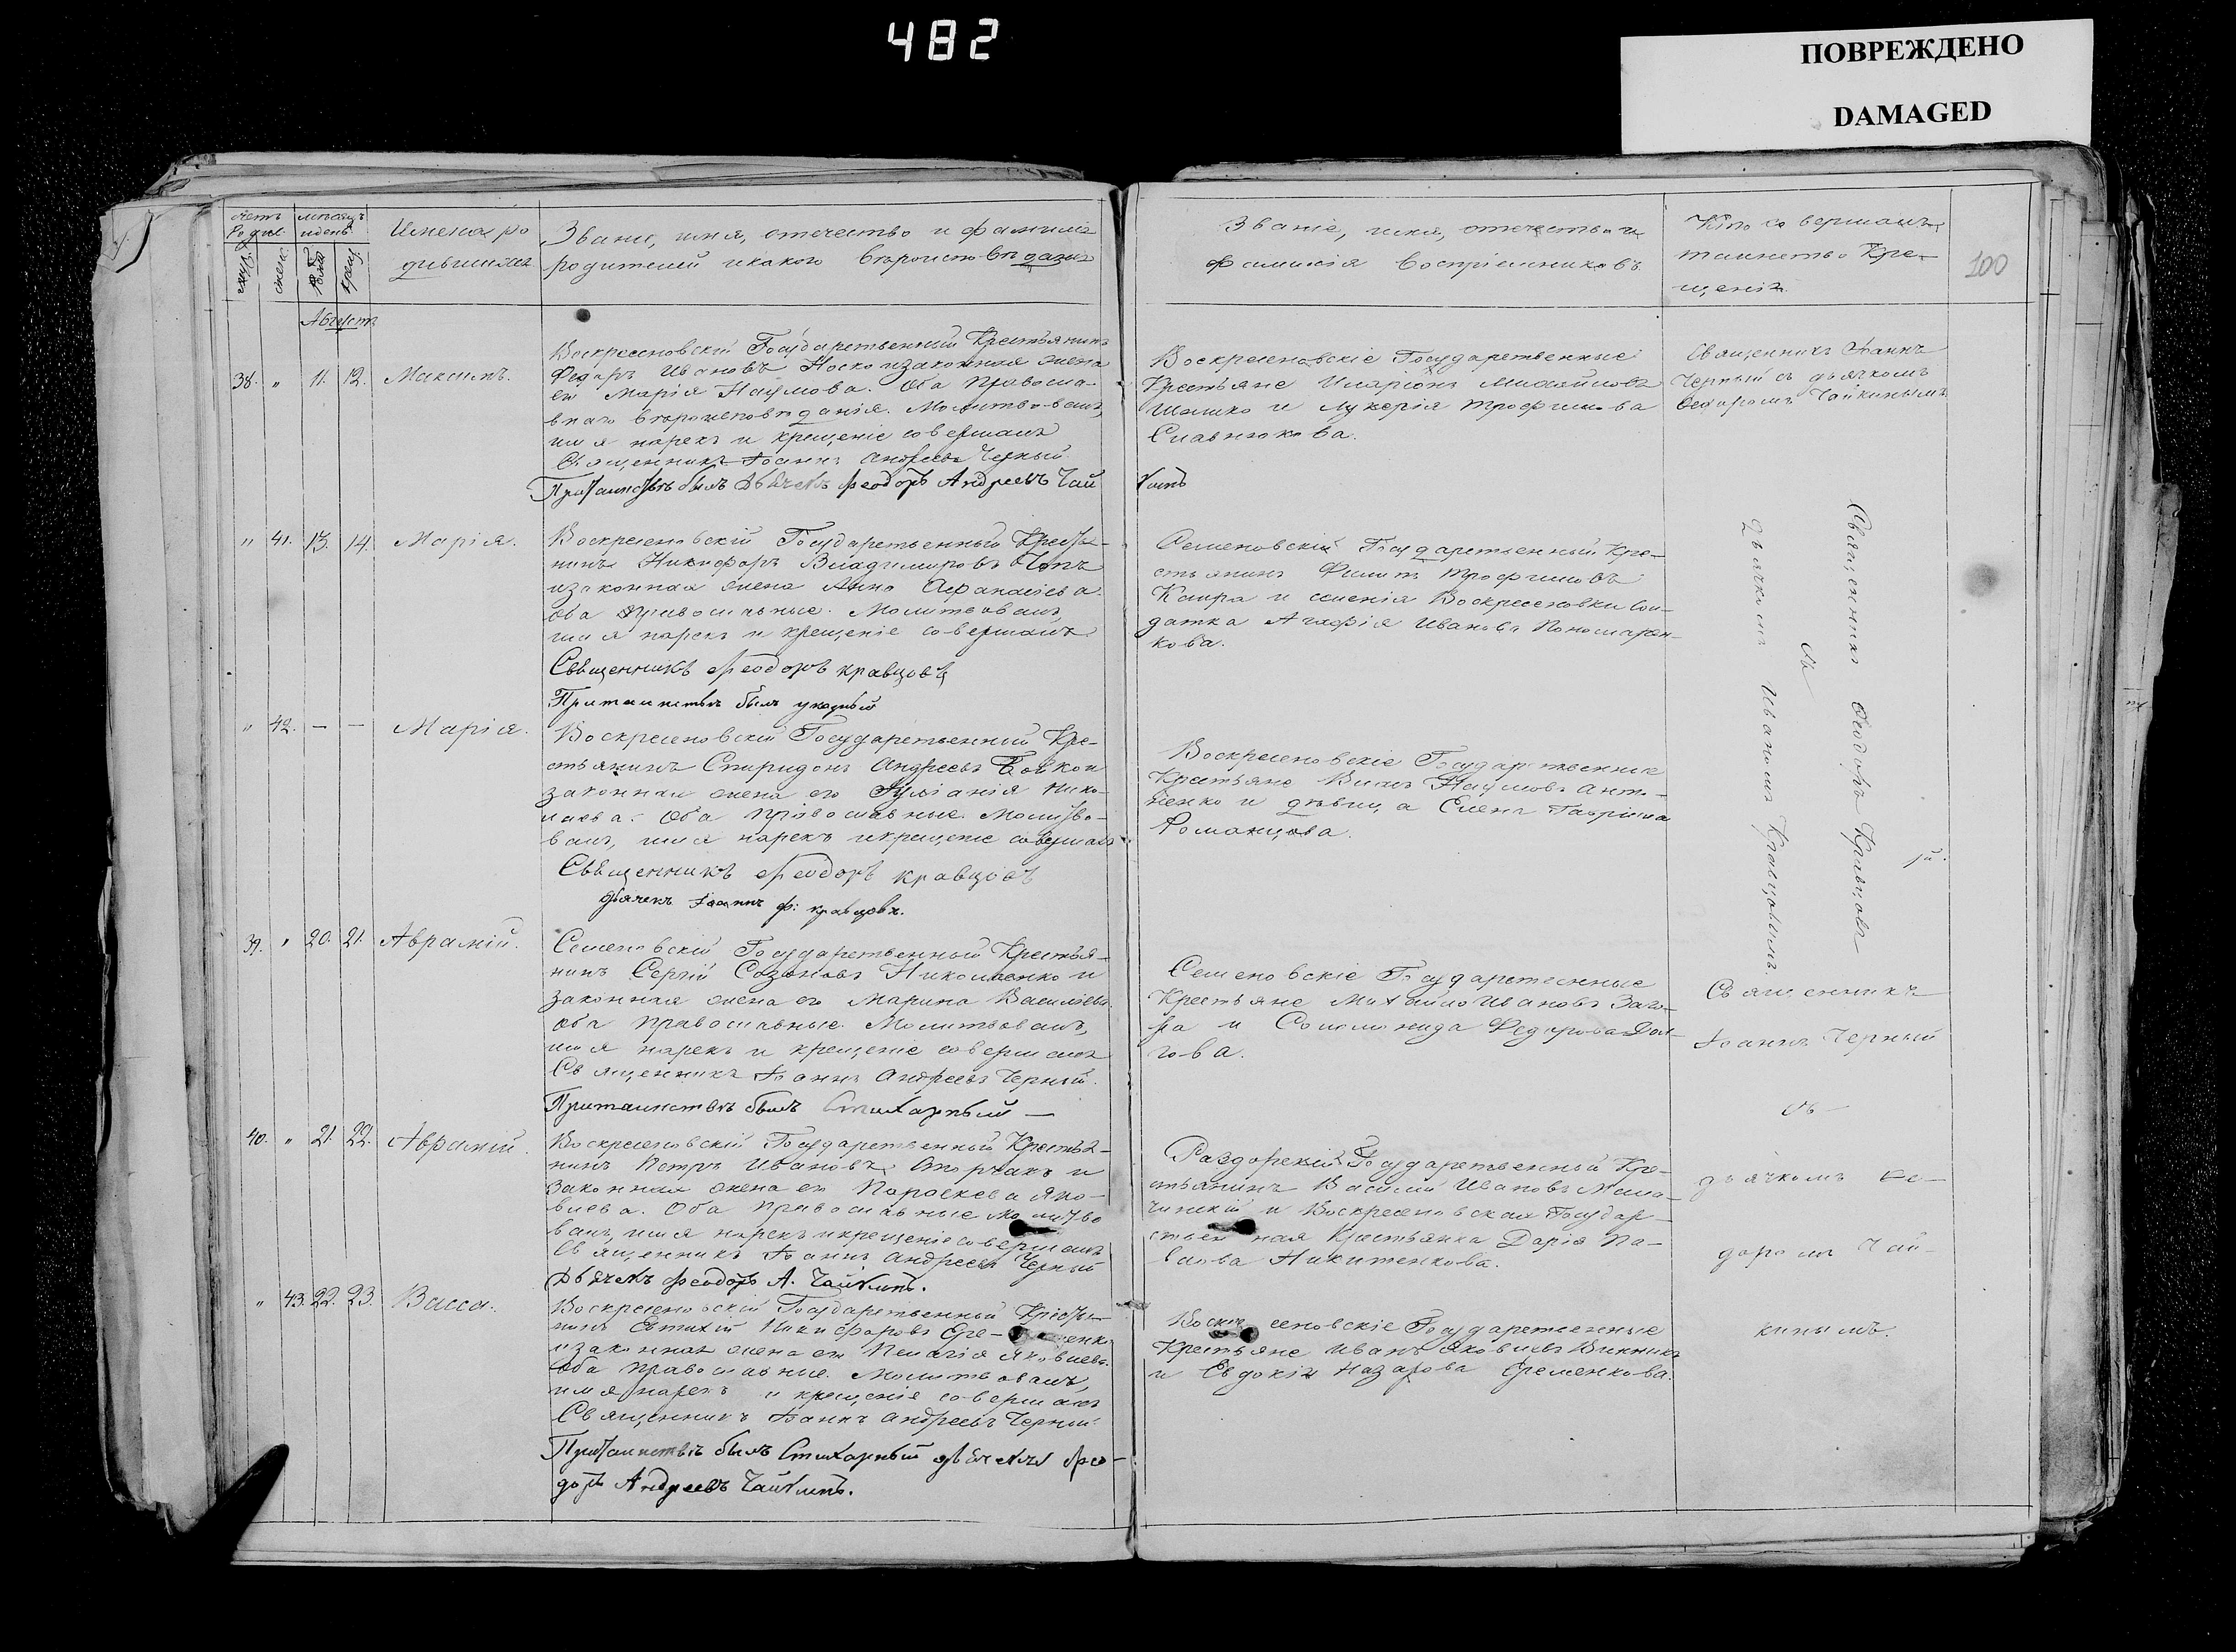 482
ПОВРЕЖДЕНО
DAMAGED
100
Счетъ Родил.
мѣсяцъ и день
Имена родившихся
Званіе, имя, отечество и фамилія
родителей и какого вѣроисповѣданія
Званіе, имя, отечество и
фамилія воспріемниковъ
Кто совершалъ
таинство Кре-
щенія
Августъ
38. " 11. 12. Максимъ.
Воскресеновскій Государственный Крестьянинъ
Федоръ Ивановъ Носко и законная жена
его Марія Наумова. Оба Правосла-
внаго вѣроисповѣданія. Молитвовалъ,
имя нарекъ и крещеніе совершалъ
Священникъ Іоаннъ Андреевъ Черный.
При таинствѣ былъ Дьячекъ Феодоръ Андреевъ Чай
кинъ
Воскресеновскіе Государственные
Крестьяне Иларіонъ Михайловъ
Шашко и Лукерія Трофимова
Славнюкова.
Священникъ Іоаннъ
Черный съ дьячкомъ
Федоромъ Чайкинымъ
" 41. 13. 14. Марія.
Воскресеновскій Государственный Кресть-
нинъ Никифоръ Владимировъ
и законная жена Анна Афанасіева.
Оба православные. Молитвовалъ,
имя нарекъ и крещеніе совершалъ
Священникъ Феодоръ Кравцовъ
При таинствѣ былъ указный
Семеновскій Государственный Кре-
стьянинъ Филипъ Трофимовъ
Капра и селенія Воскресеновки Сол-
датка Агафія Иванова Пономарен-
кова.
Священникъ Феодоръ Кравцовъ
съ
дьячкомъ Иваномъ Кравцовымъ.
" 42. — — Марія.
Воскресеновскій Государственный Кре-
стьянинъ Спиридонъ Андреевъ и
законная жена его Іуліанія Нико-
лаева. Оба православные. Молитво-
валъ, имя нарекъ и крещеніе совершалъ
Священникъ Феодоръ Кравцовъ
дьячекъ Іоаннъ Ф: Кравцовъ.
Воскресеновскіе Государственные
Крестьяне Наумовъ Анто-
ненко и дѣвица Елена Гавріила
Романцова.
39. " 20. 21. Аврамій.
Семеновскій Государственный Крестья-
нинъ Сергій Созоновъ Николаенко и
законная жена его Марина Василіева.
Оба православные. Молитвовалъ,
имя нарекъ и крещеніе совершалъ
Священникъ Іоаннъ Андреевъ Черный.
При таинствѣ былъ Стихарный —
Семеновскіе Государственные
Крестьяне Михайло Ивановъ Заго-
ра и Соломонида Федорова Дол-
гова.
Священникъ
Іоаннъ Черный
съ
дьячкомъ Фе-
доромъ Чай-
кинымъ.
40. " 21. 22. Аврамій.
Воскресеновскій Государственный Крестья-
нинъ Петръ Ивановъ Сторчакъ и
законная жена его Параскева Яко-
влева. Оба православные Молитво
валъ, имя нарекъ и крещеніе совершалъ
Священникъ Іоаннъ Андреевъ Черный
Дьячекъ Феодоръ А. Чайкинъ.
Раздорскій Государственный Кре-
стьянинъ Василій Ивановъ
и Воскресеновская Государ-
ственная Крестьянка Дарія Па-
влова Никитенкова.
" 43. 22. 23. Васса.
Воскресеновскій Государственный Кресть-
нинъ Евтихій Никифоровъ Ере-менко
и законная жена его Пелагія Яковлева.
Оба православные. Молитвовалъ,
имя нарекъ и крещеніе совершалъ
Священникъ Іоаннъ Андреевъ Черный.
При таинствѣ былъ Стихарный дьячекъ Фео-
доръ Андреевъ Чайкинъ.
Воскресеновскіе Государственные
Крестьяне Иванъ Яковлевъ
и Евдокія Назарова Еременкова.